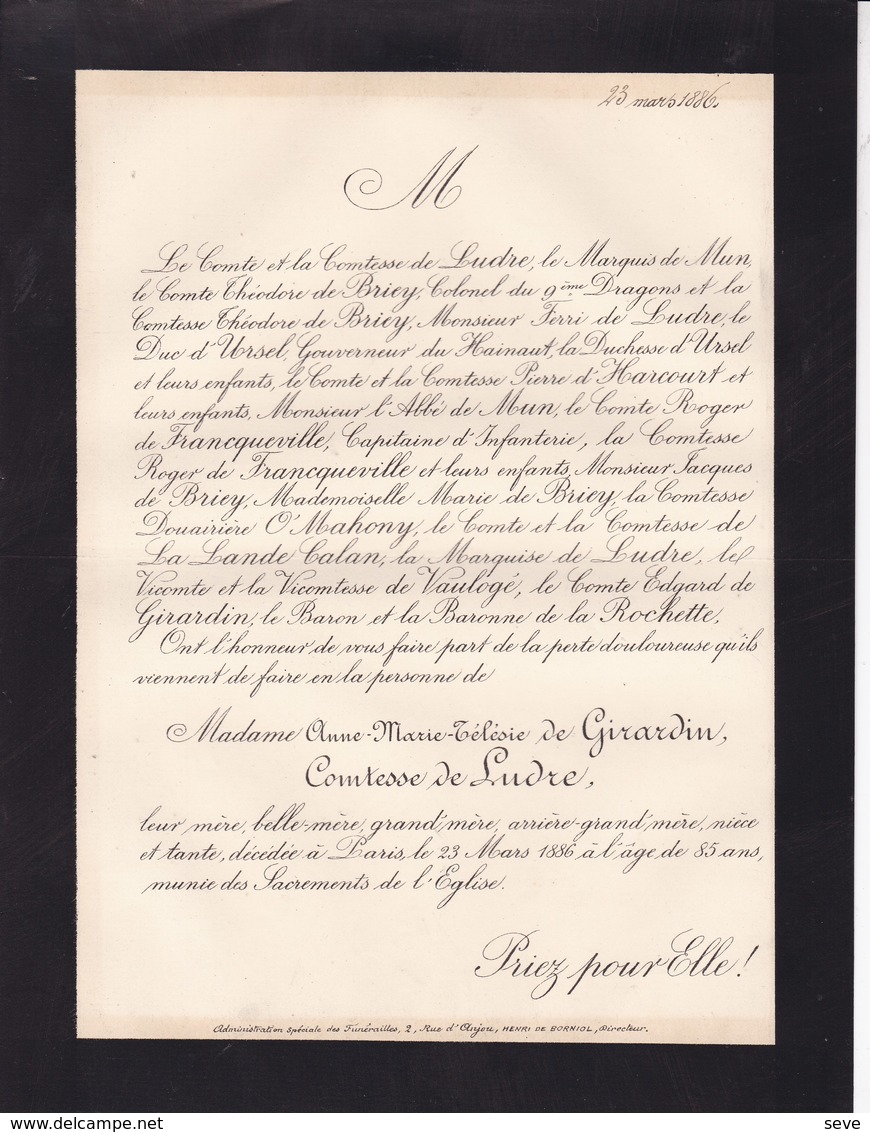 23 mars 1886.
M
Le Comte et la Comtesse de Ludre, le Marquis de Mun,
le Comte Théodore de Briey, Colonel du 9ème Dragons et la
Comtesse Théodore de Briey, Monsieur Ferri de Ludre, le
Duc d'Ursel, Gouverneur du Hainaut, la Duchesse d'Ursel
et leurs enfants, le Comte et la Comtesse Pierre d'Harcourt et
leurs enfants, Monsieur l'Abbé de Mun, le Comte Roger
de Francqueville, Capitaine d'Infanterie, la Comtesse
Roger de Francqueville et leurs enfants, Monsieur Jacques
de Briey, Mademoiselle Marie de Briey, la Comtesse
Douairière O'Mahony, le Comte et la Comtesse de
La Lande Calan, la Marquise de Ludre, le
Vicomte et la Vicomtesse de Vaulogé, le Comte Edgard de
Girardin, le Baron et la Baronne de la Rochette,
Ont l'honneur de vous faire part de la perte douloureuse qu'ils
viennent de faire en la personne de
Madame Anne-Marie-Télésie de Girardin,
Comtesse de Ludre,
leur mère, belle-mère, grand'mère, arrière-grand'mère, nièce
et tante, décédée à Paris, le 23 Mars 1886 à l'âge de 85 ans,
munie des Sacrements de l'Eglise.
Priez pour Elle!
Administration Spéciale des Funérailles, 2, Rue d'Anjou, HENRI DE BORNIOL, Directeur.
seve